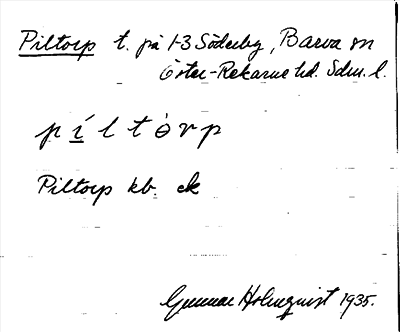 Piltorp t. på 1-3 Söderby, Barva sn
Öster-Rekarne hd. Sdm. l.
p í l t ò r p
Piltorp kb. ek
Gunnar Holmquist 1935.